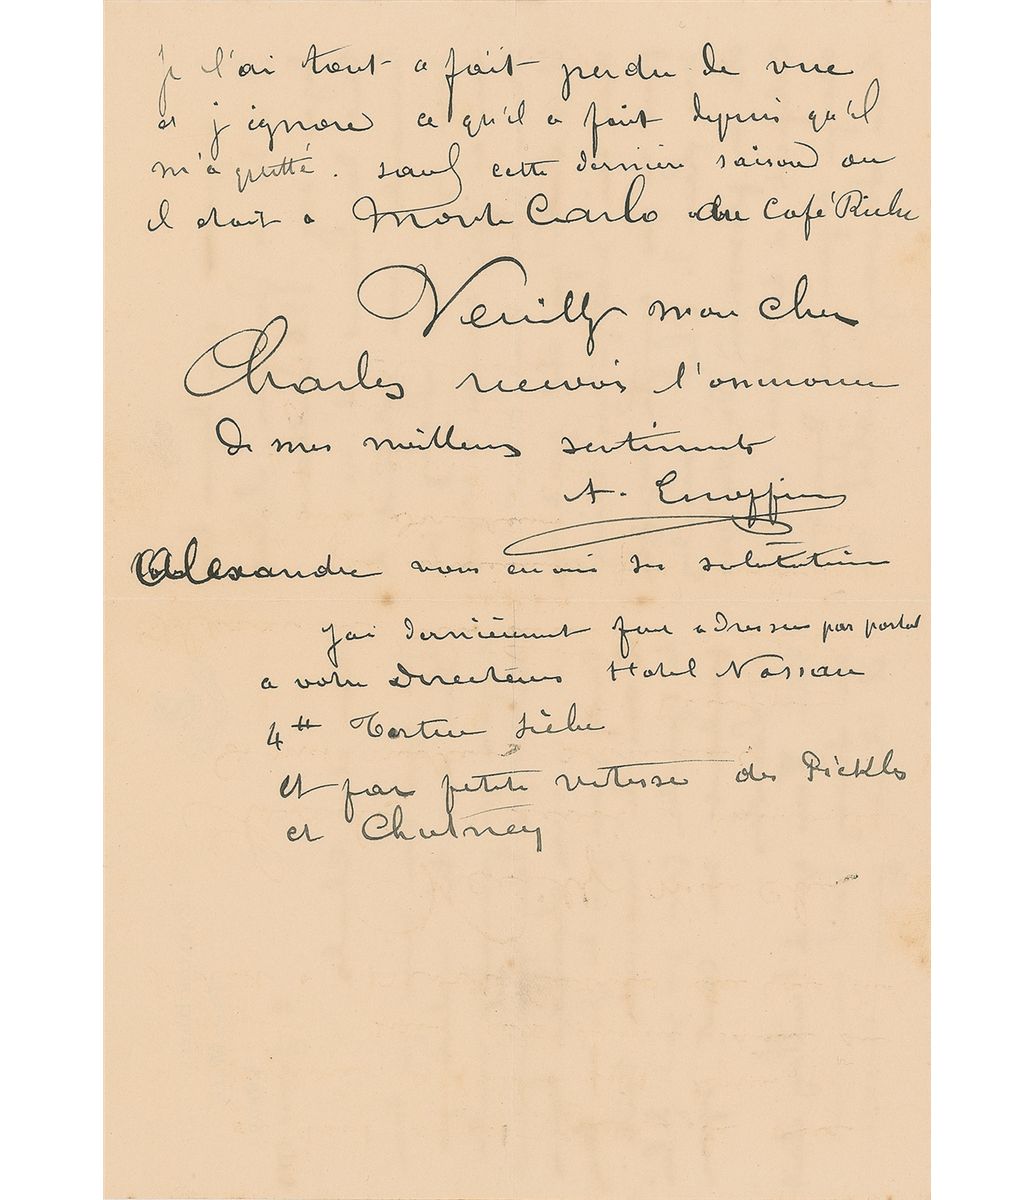 je l'ai tout a fait perdu de vue
et j'ignore ce qu'il a fait depuis qu'il
m'a quitté. sauf cette dernière saison ou
il etait a Monte Carlo au Café Riche
Veuillez mon cher
Charles recevois l'assurance
de mes meilleurs sentiments
A.
Alexandre vous envoie ses salutations
J'ai dernièrement fait adresser par postal
a votre Directeurs Hotel Nassau
4 tt Tortue Sèche
et par petite vitesse des Pickles
et Chutney